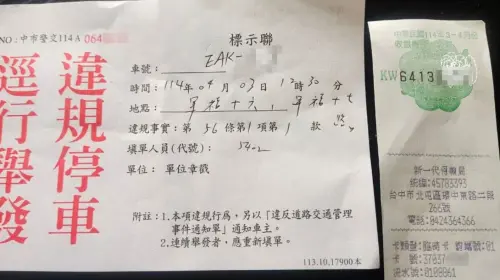 NO：中市警交114A 064
違規停車
逕行舉發
標示聯
車號： EAK-
時間：114年04月03日12時30分
地點：軍福十六，軍福十七 路
違規事實：第56條第1項第1款
填單人員(代號)：
單位：單位章戳
附註：1.本項違規行為，另以「違反道路交通管理
事件通知單」通知車主。
2.連續舉發者，應重新填單。
113.10.17900本
中華民國114年3-4月份
收銀機
KW6413
新一代停車場
統編:45783393
台中市北屯區環中東路二段
266號
電話:0424364366
卡號:37837
流水號:0108061